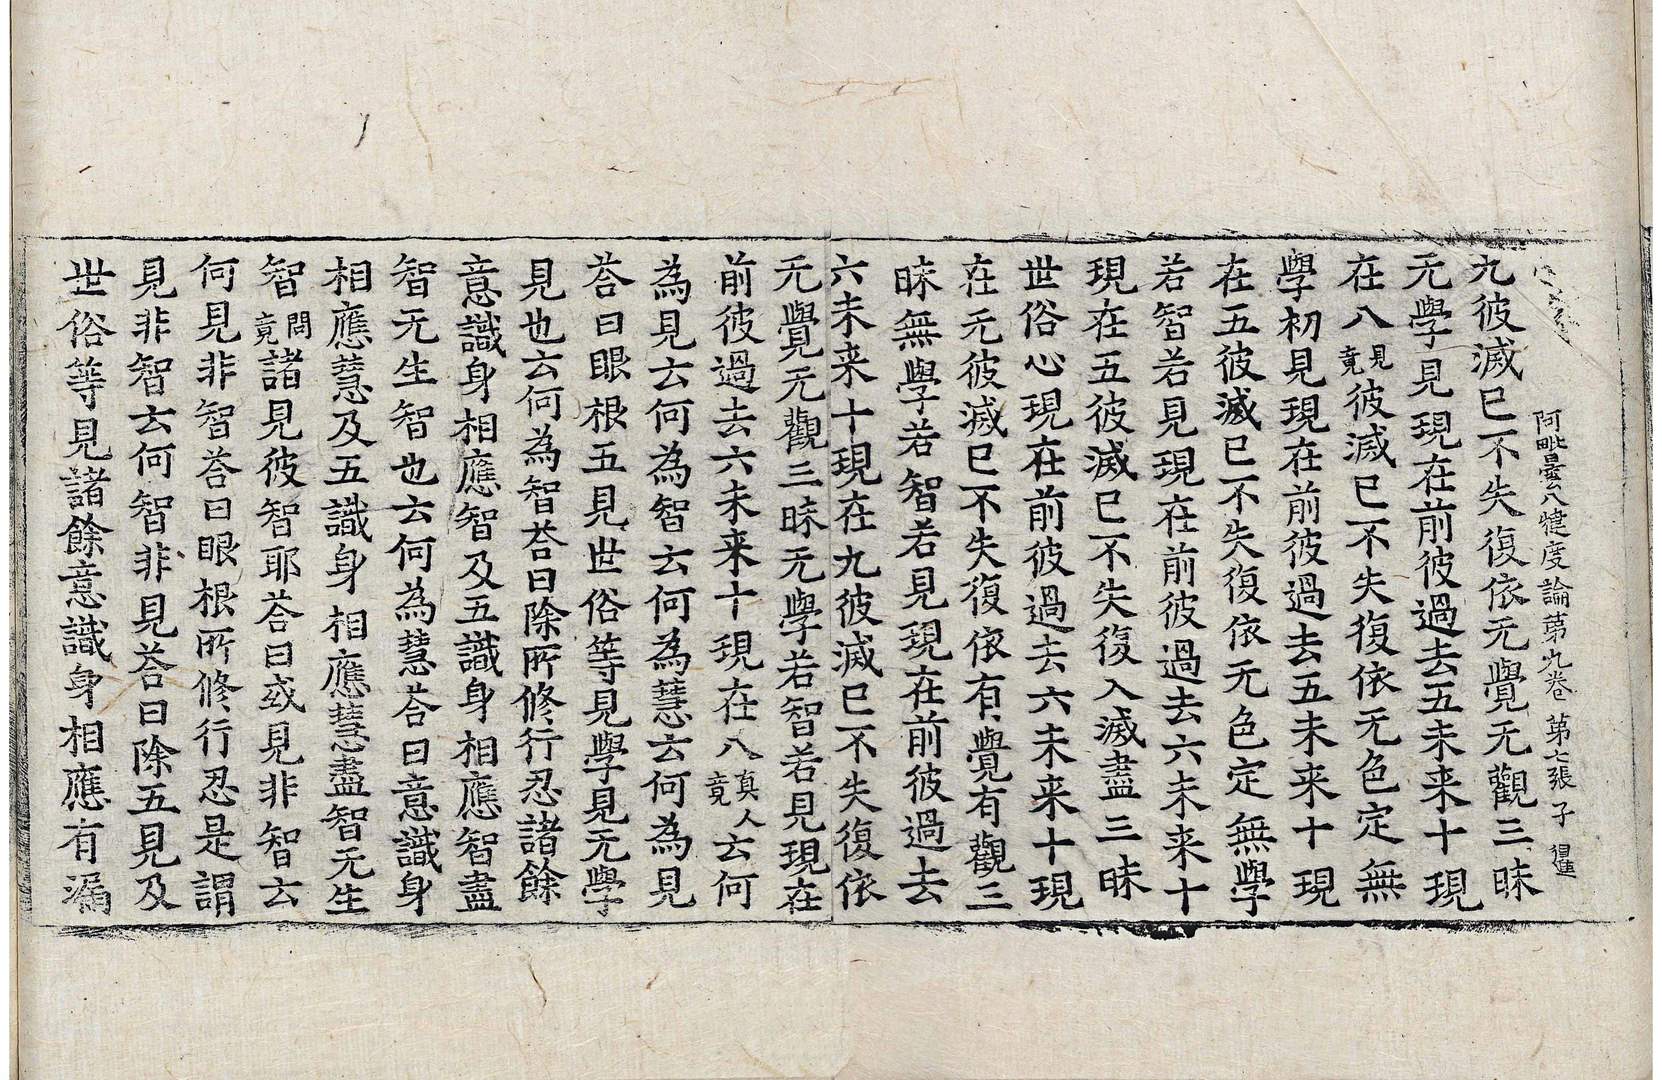 阿毗曇八犍度論第九卷 第七張 子
九彼滅已不失復依无覺无觀三昧
无學見現在前彼過去五未来十現
在八見竟彼滅已不失復依无色定無
學初見現在前彼過去五未来十現
在五彼滅已不失復依无色定無學
若智若見現在前彼過去六未来十
現在五彼滅已不失復入滅盡三昧
世俗心現在前彼過去六未来十現
在无彼滅已不失復依有覺有觀三
昧無學若智若見現在前彼過去
六未来十現在九彼滅已不失復依
无覺无觀三昧无學若智若見現在
前彼過去六未来十現在八真人竟云何
為見云何為智云何為慧云何為見
荅曰眼根五見世俗等見學見无學
見也云何為智荅曰除所修行忍諸餘
意識身相應智及五識身相應智盡
智无生智也云何為慧荅曰意識身
相應慧及五識身相應慧盡智无生
智問竟諸見彼智耶荅曰或見非智云
何見非智荅曰眼根所修行忍是謂
見非智云何智非見荅曰除五見及
世俗等見諸餘意識身相應有漏